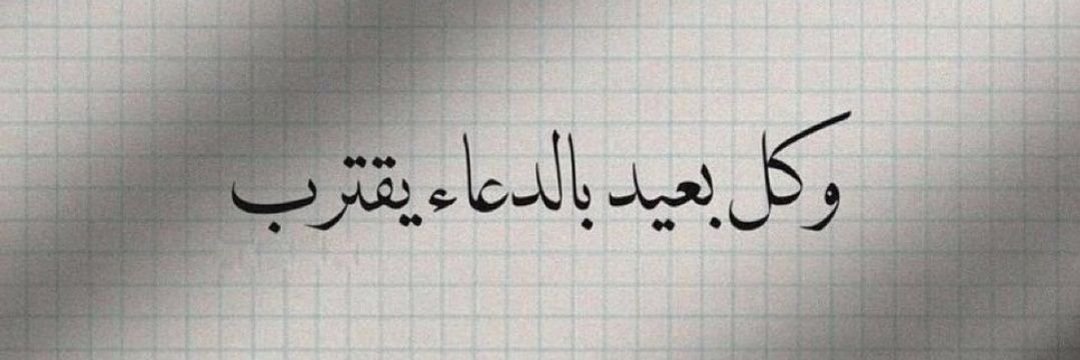 وكل بعيد بالدعاء يقترب